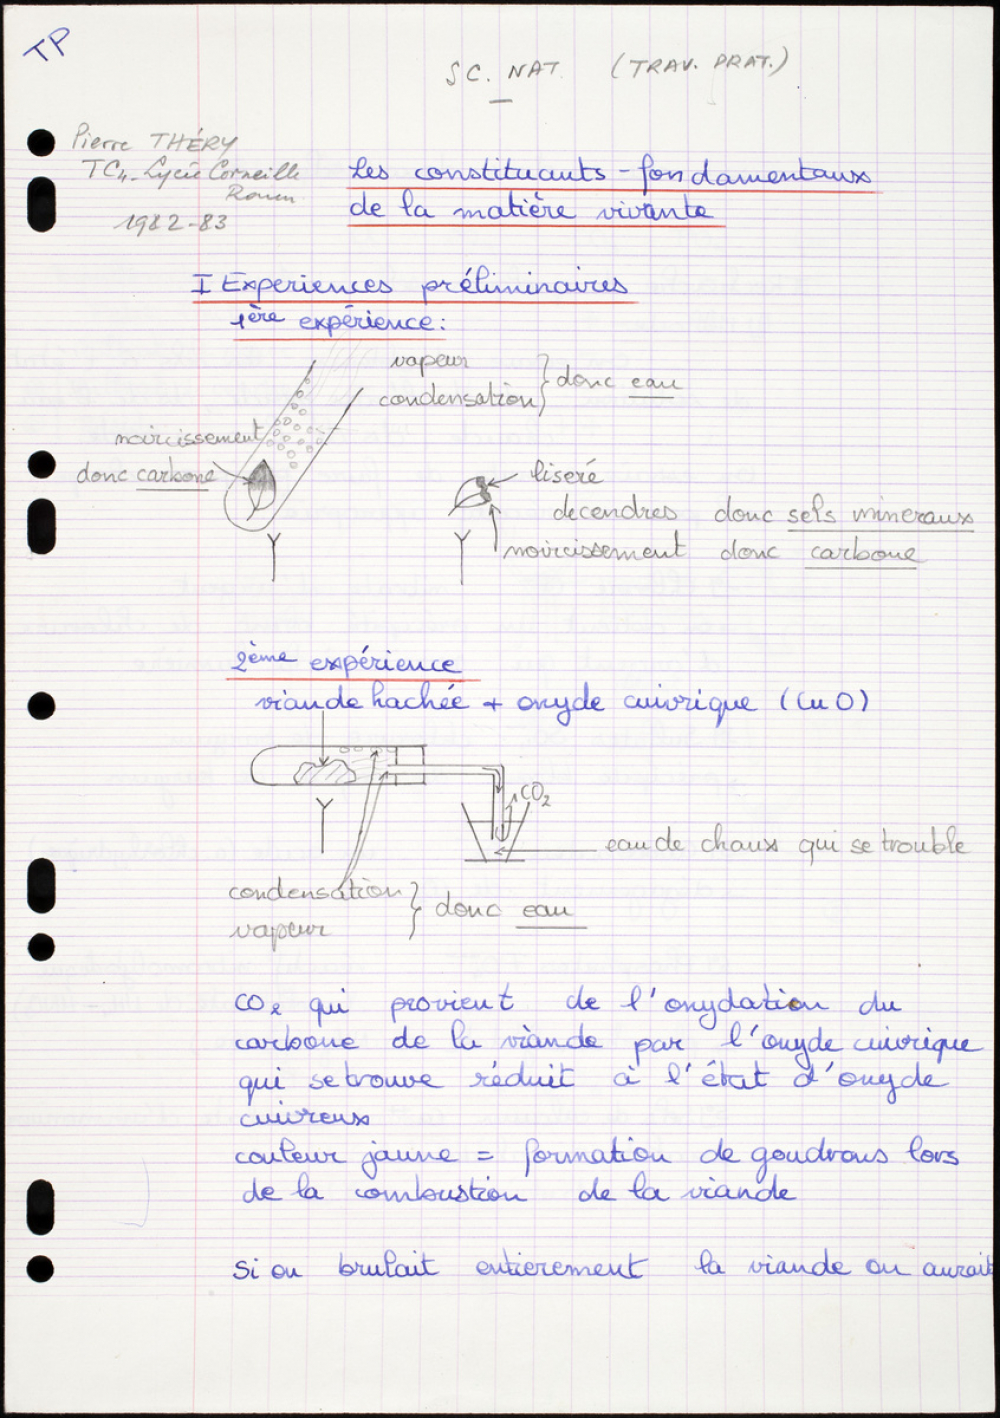 TP
SC. NAT. (TRAV. PRAT.)
Pierre THÉRY
TC4 - Lycée Corneille
Rouen
1982-83
Les constituants - fondamentaux
de la matière vivante
I Experiences préliminaires
1ère expérience:
vapeur
condensation } donc eau
noircissement
donc carbone
liseré
decendres donc sels mineraux
noircissement donc carbone
2ème expérience
viande hachée + oxyde cuivrique (CuO)
CO2
eau de chaux qui se trouble
condensation
vapeur } donc eau
CO2 qui provient de l'oxydation du
carbone de la viande par l'oxyde cuivrique
qui se trouve réduit à l'état d'oxyde
cuivreux
couleur jaune = formation de goudrons lors
de la combustion de la viande
Si on brulait entierement la viande on aurait